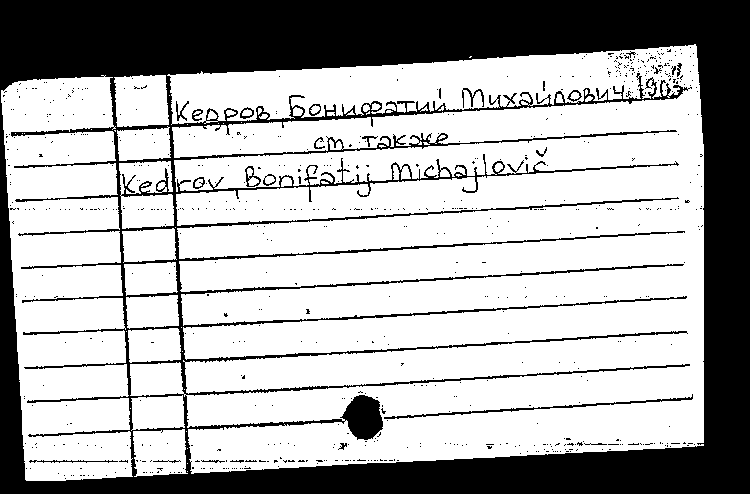 Кедров, Бонифатий Михайлович, 1903
см. также
Kedrov, Bonifatij Michajlovič